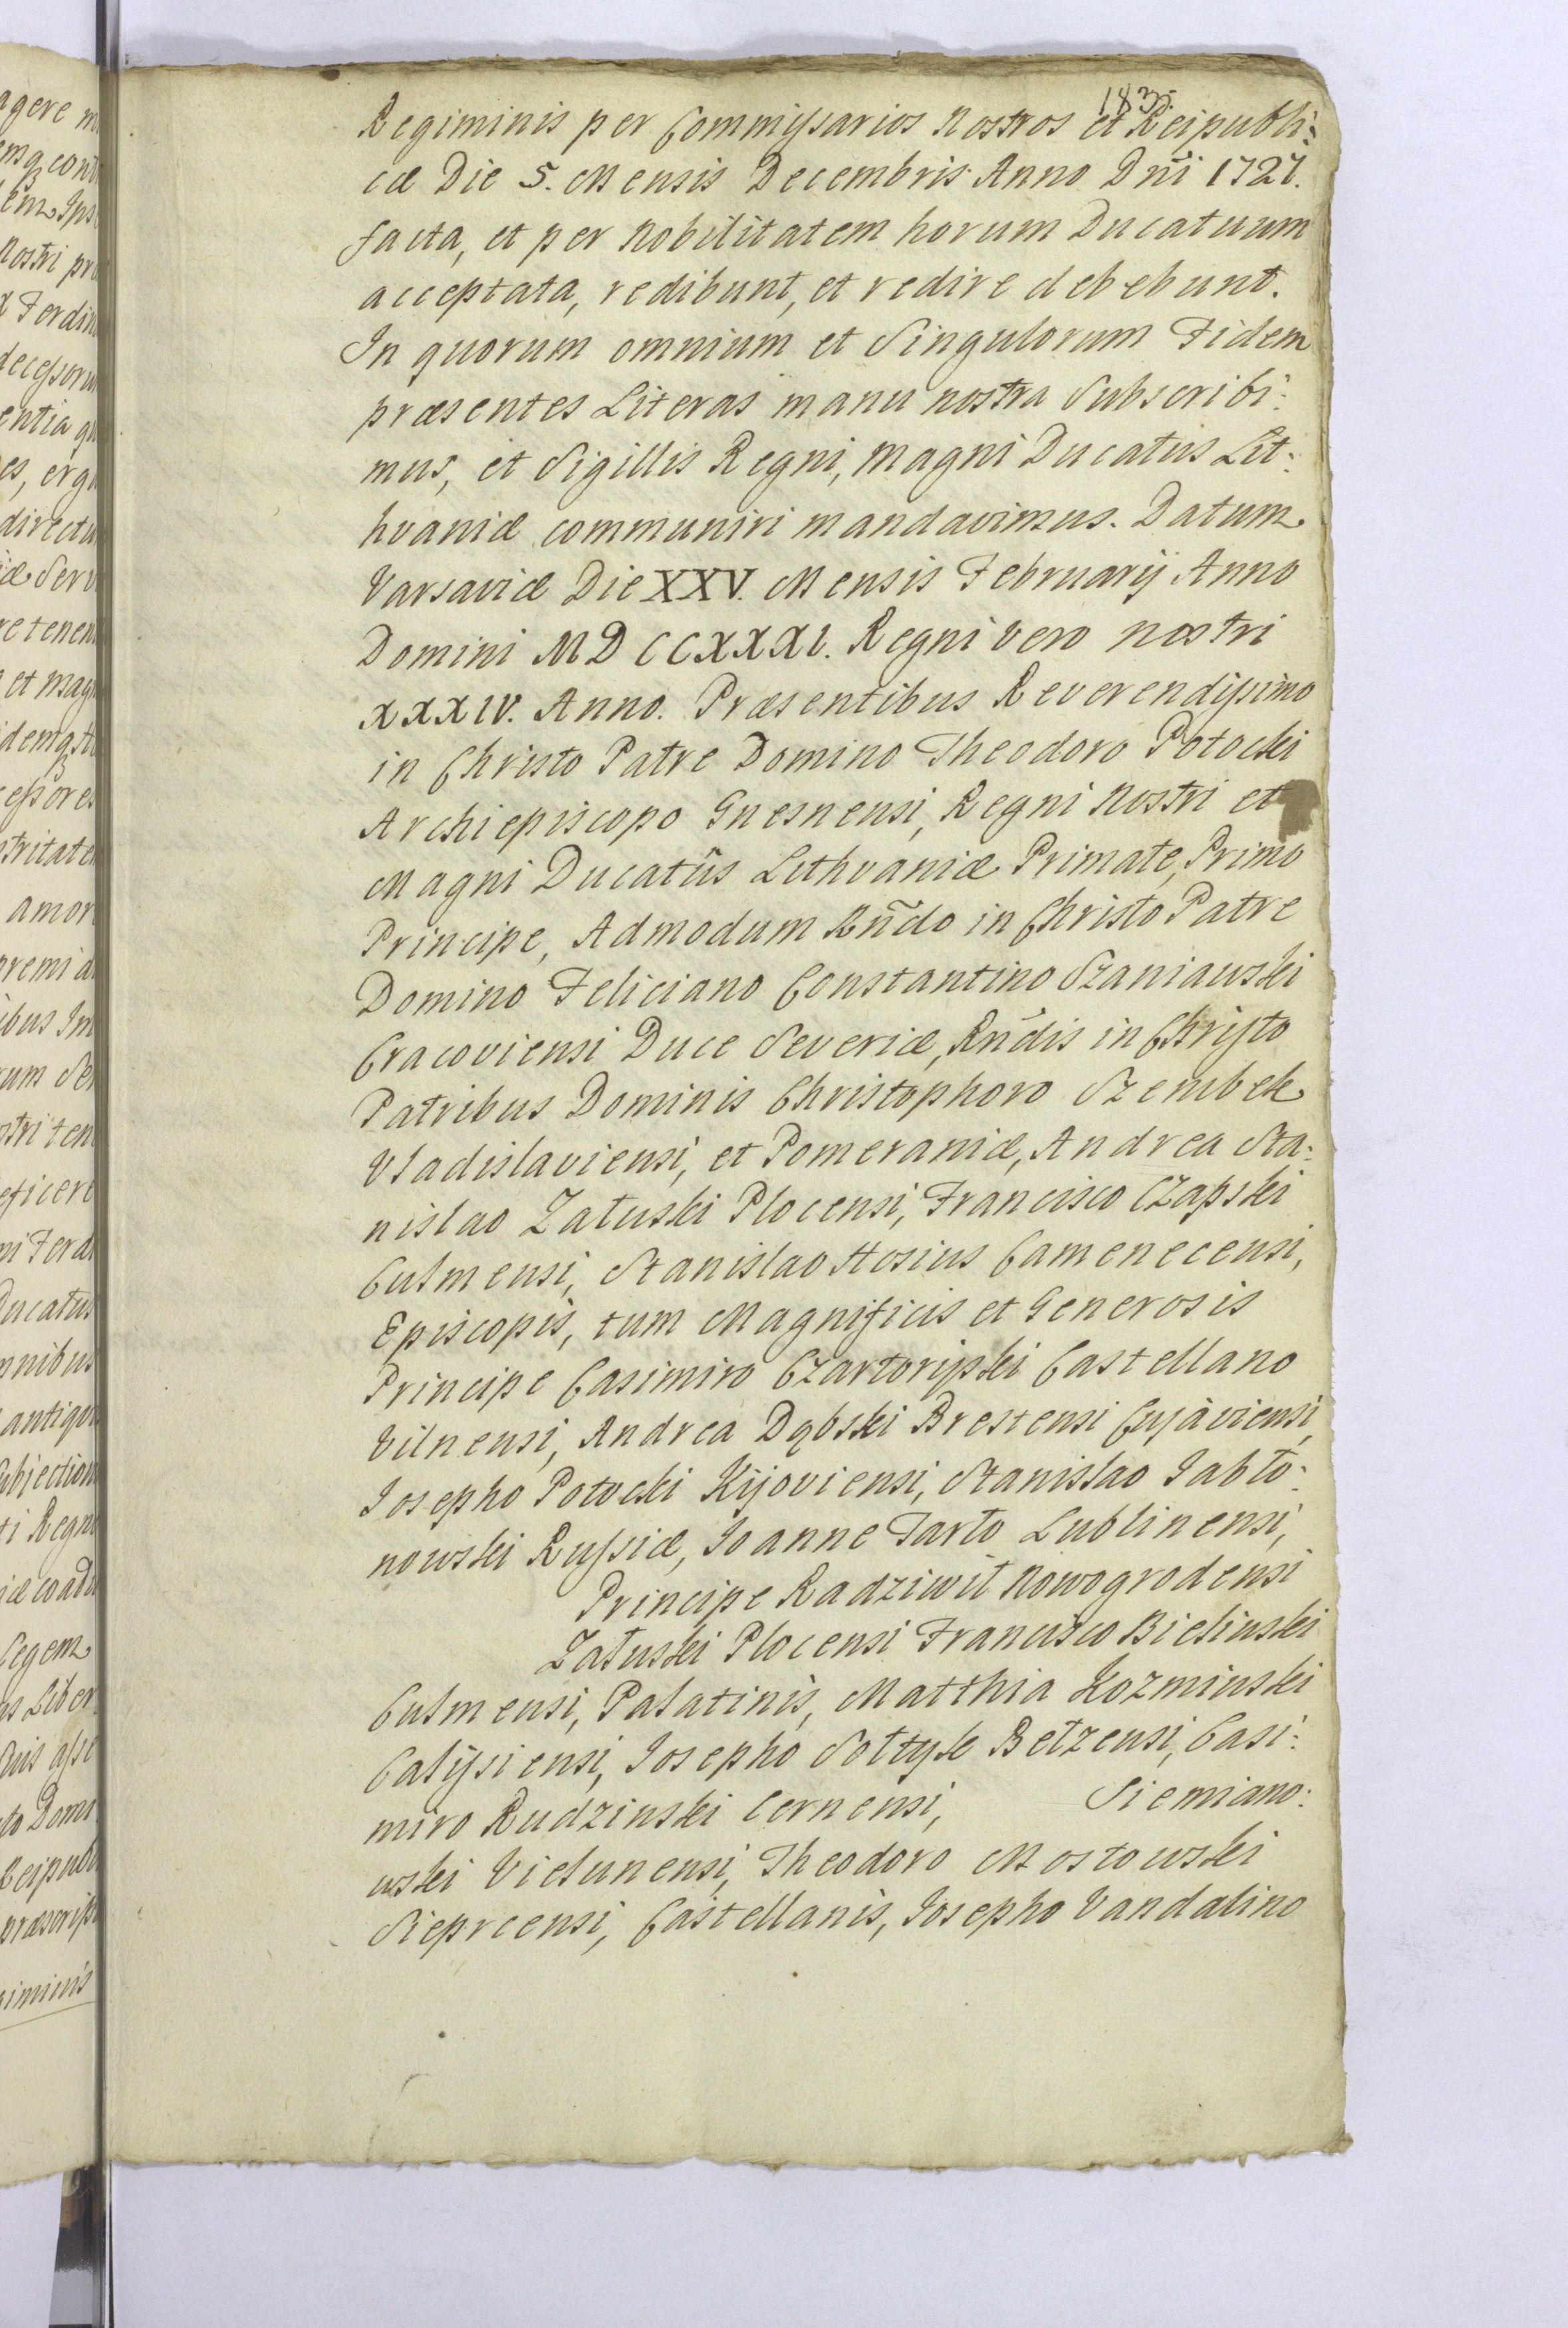 183.
Regiminis per Commissarios Nostros et Reipubli:
cæ Die 5. Mensis Decembris Anno Dñi 1727.
facta, et per Nobilitatem horum Ducatuum
acceptata, redibunt, et redire debebunt.
In quorum omnium et Singulorum Fidem
præsentes Literas manu nostra Subscribi:
mus, et Sigillis Regni, Magni Ducatus Lit:
hvaniæ communiri mandavimus. Datum
Varsaviæ Die XXV. Mensis Februarij Anno
Domini MDCCXXXI. Regni vero nostri
XXXIV. Anno. Præsentibus Reverendissimo
in Christo Patre Domino Theodoro Potocki
Archiepiscopo Gnesnensi, Regni Nostri et
Magni Ducatûs Lithvaniæ Primate, Primo
Principe, Admodum Rñdo in Christo Patre
Domino Feliciano Constantino Szaniawski
Cracoviensi Duce Severiæ, Rñdis in Christo
Patribus Dominis Christophoro Szembek
Vladislaviensi, et Pomeraniæ, Andrea Sta:
nislao Załuski Plocensi, Francisco Czapski
Culmensi, Stanislao Hosius Camenecensi,
Episcopis, tum Magnificis et Generosis
Principe Casimiro Czartoryski Castellano
Vilnensi, Andrea Dąbski Brestensi Cujaviensi,
Josepho Potocki Kijoviensi, Stanislao Jabło:
nowski Russiæ, Joanne Tarło Lublinensi,
Principe Radziwił Nowogrodensi
Załuski Plocensi Francisco Bielinski
Culmensi, Palatinis, Matthia Kozminski
Calissiensi, Josepho Sołtyk Bełzensi, Casi:
miro Rudzinski Cernensi, Siemiano:
wski Vielunensi, Theodoro Mostowski
Sieprcensi, Castellanis, Josepho Vandalino